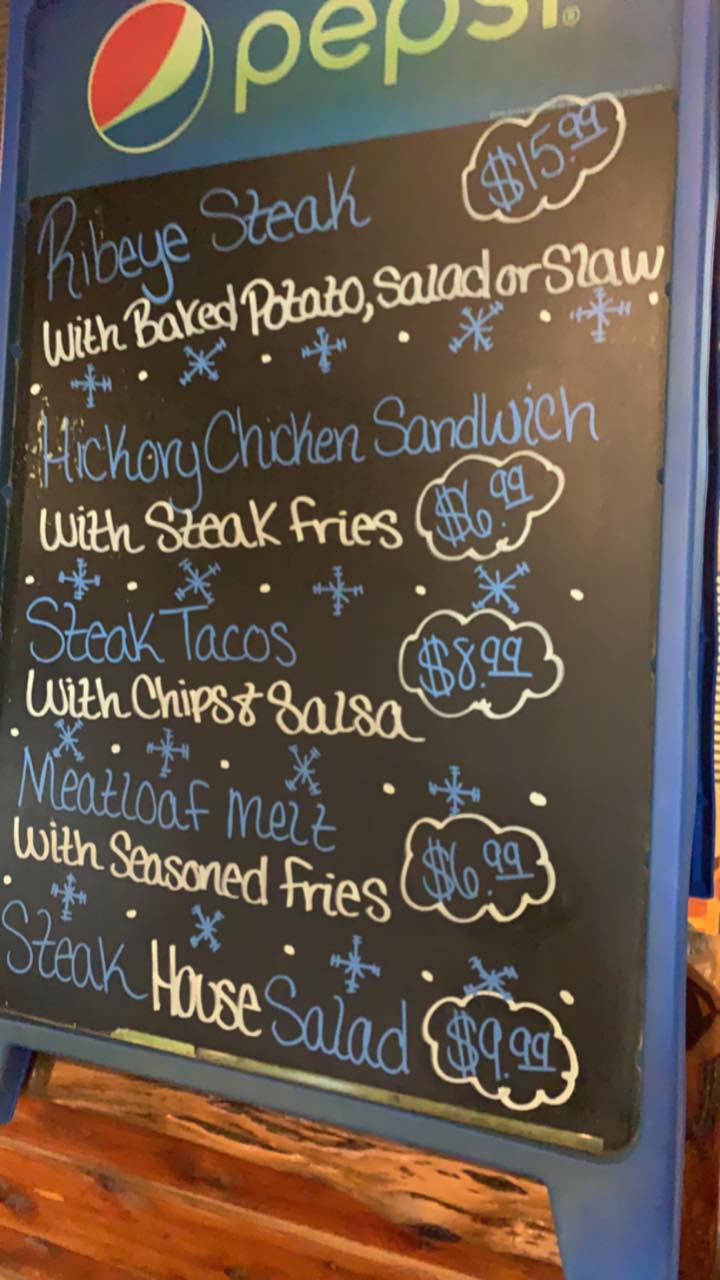 pepsi®
Ribeye Steak $15.99
With Baked Potato, Salad or Slaw
Hickory Chicken Sandwich
With Steak fries $6.99
Steak Tacos $8.99
With Chips & Salsa
Meatloaf melt
With Seasoned fries $6.99
Steak House Salad $9.99